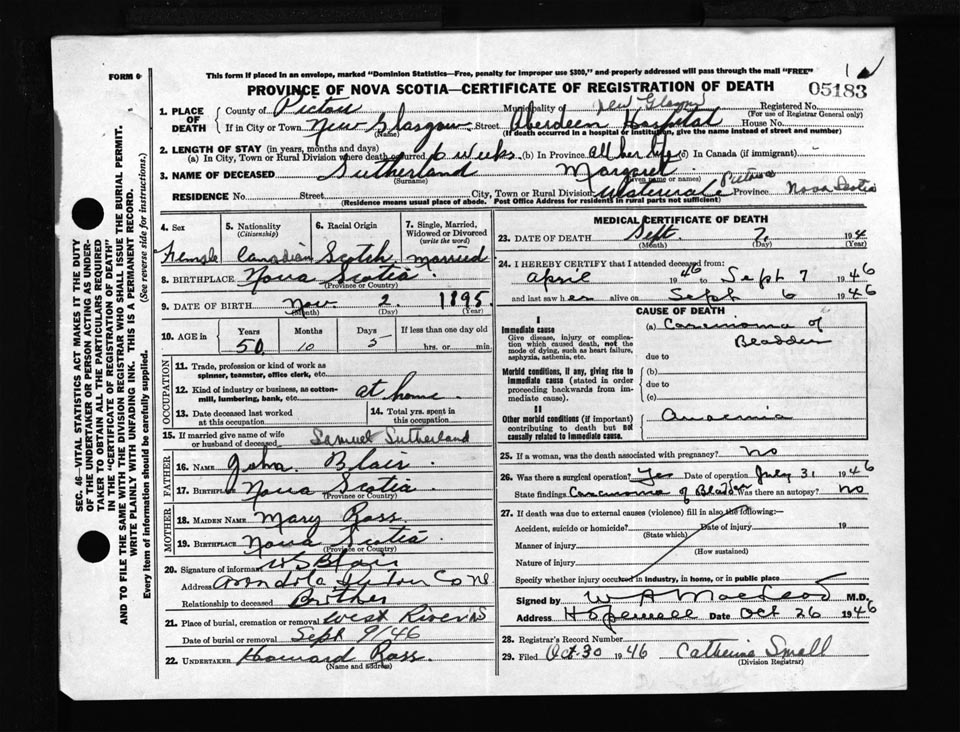 FORM 6
This form if placed in an envelope, marked "Dominion Statistics—Free, penalty for improper use $300," and properly addressed will pass through the mail "FREE"
PROVINCE OF NOVA SCOTIA—CERTIFICATE OF REGISTRATION OF DEATH
05183
1. PLACE OF DEATH
County of Pictou Municipality of New Glasgow Registered No.
(For use of Registrar General only)
If in City or Town New Glasgow Street Aberdeen Hospital House No.
(Name) (If death occurred in a hospital or institution, give the name instead of street and number)
2. LENGTH OF STAY (in years, months and days)
(a) In City, Town or Rural Division where death occurred 6 weeks (b) In Province all her life (c) In Canada (if immigrant)
3. NAME OF DECEASED Sutherland Margaret
(Surname) (Given name or names)
RESIDENCE No. Street City, Town or Rural Division Pictou Province Nova Scotia
(Residence means usual place of abode. Post Office Address for residents in rural parts not sufficient)
SEC. 46—VITAL STATISTICS ACT MAKES IT THE DUTY
OF THE UNDERTAKER OR PERSON ACTING AS UNDER-
TAKER TO OBTAIN ALL THE PARTICULARS REQUIRED
IN THE "CERTIFICATE OF REGISTRATION OF DEATH"
AND TO FILE THE SAME WITH THE DIVISION REGISTRAR WHO SHALL ISSUE THE BURIAL PERMIT.
WRITE PLAINLY WITH UNFADING INK. THIS IS A PERMANENT RECORD.
Every item of information should be carefully supplied. (See reverse side for instructions.)
4. Sex
Female
5. Nationality
(Citizenship)
Canadian
6. Racial Origin
Scotch
7. Single, Married, Widowed or Divorced
(write the word)
Married
8. BIRTHPLACE Nova Scotia
(Province or Country)
9. DATE OF BIRTH Nov 2 1895
(Month) (Day) (Year)
10. AGE in Years Months Days If less than one day old
50 10 5 hrs. or min.
OCCUPATION
11. Trade, profession or kind of work as
spinner, teamster, office clerk, etc.
12. Kind of industry or business, as cotton-
mill, lumbering, bank, etc. at home
13. Date deceased last worked
at this occupation
14. Total yrs. spent in
this occupation
15. If married give name of wife
or husband of deceased Samuel Sutherland
FATHER
16. NAME John Blair
17. BIRTHPLACE Nova Scotia
(Province or Country)
MOTHER
18. MAIDEN NAME Mary Ross
19. BIRTHPLACE Nova Scotia
(Province or Country)
20. Signature of informant Blair
Address Co
Relationship to deceased Brother
21. Place of burial, cremation or removal West River NS
Date of burial or removal Sept 9/46
22. UNDERTAKER Howard Ross
(Name and address)
MEDICAL CERTIFICATE OF DEATH
23. DATE OF DEATH Sept. 7 194
(Month) (Day) (Year)
24. I HEREBY CERTIFY that I attended deceased from:
April 1946 to Sept 7 1946
and last saw her alive on Sept 6 1946
CAUSE OF DEATH
I
Immediate cause
Give disease, injury or complica-
tion which caused death, not the
mode of dying, such as heart failure,
asphyxia, asthenia, etc.
(a) Carcinoma of
Bladder
due to
Morbid conditions, if any, giving rise to
immediate cause (stated in order
proceeding backwards from im-
mediate cause).
(b)
due to
(c)
II
Other morbid conditions (if important)
contributing to death but not
causally related to immediate cause.
Anaemia
25. If a woman, was the death associated with pregnancy? No
26. Was there a surgical operation? Yes Date of operation July 31 1946
State findings Carcinoma of Bladder Was there an autopsy? No
27. If death was due to external causes (violence) fill in also the following:—
Accident, suicide or homicide? Date of injury 19
(State which)
Manner of injury
(How sustained)
Nature of injury
Specify whether injury occurred in industry, in home, or in public place
Signed by W A MacLeod M.D.
Address Hopewell Date Oct 26 1946
28. Registrar's Record Number
29. Filed Oct. 30 1946 Catherine Small
(Division Registrar)